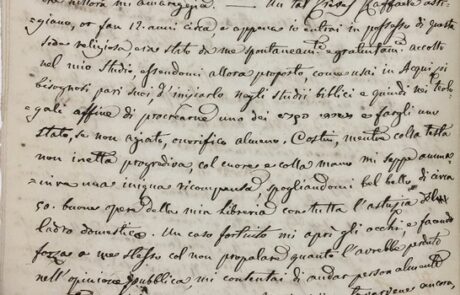 allora mi amareggia. — Un tal Chefs Raffaele arti-
giano, or fan 12 anni circa e appena io entrai in possesso di questa
sede religiosa era stato da me spontaneam. e gratuitam. accolto
nel mio studio, essendomi allora proposto, come usai in Acqui, pei
bisognosi pari suoi d'iniziarlo negli studii biblici e quindi nei teolo-
gali affine di procrearne uno dei e fargli uno
stato, se non agiato, onorifico almeno. Costui, mentre colla testa
non inetta progrediva, col cuore e colla mano mi seppe ammas-
una iniqua ricompensa, spogliandomi bel bello di circa
50. buone opere dalla mia libreria con tutta l'astuzia d'un
ladro domestico. Un caso fortuito mi aprì gli occhi, e facendo
forza a me stesso col non propalare quanto l'avrebbe perduto
nell'opinione pubblica, mi contentai di andar personalmente
ancora,